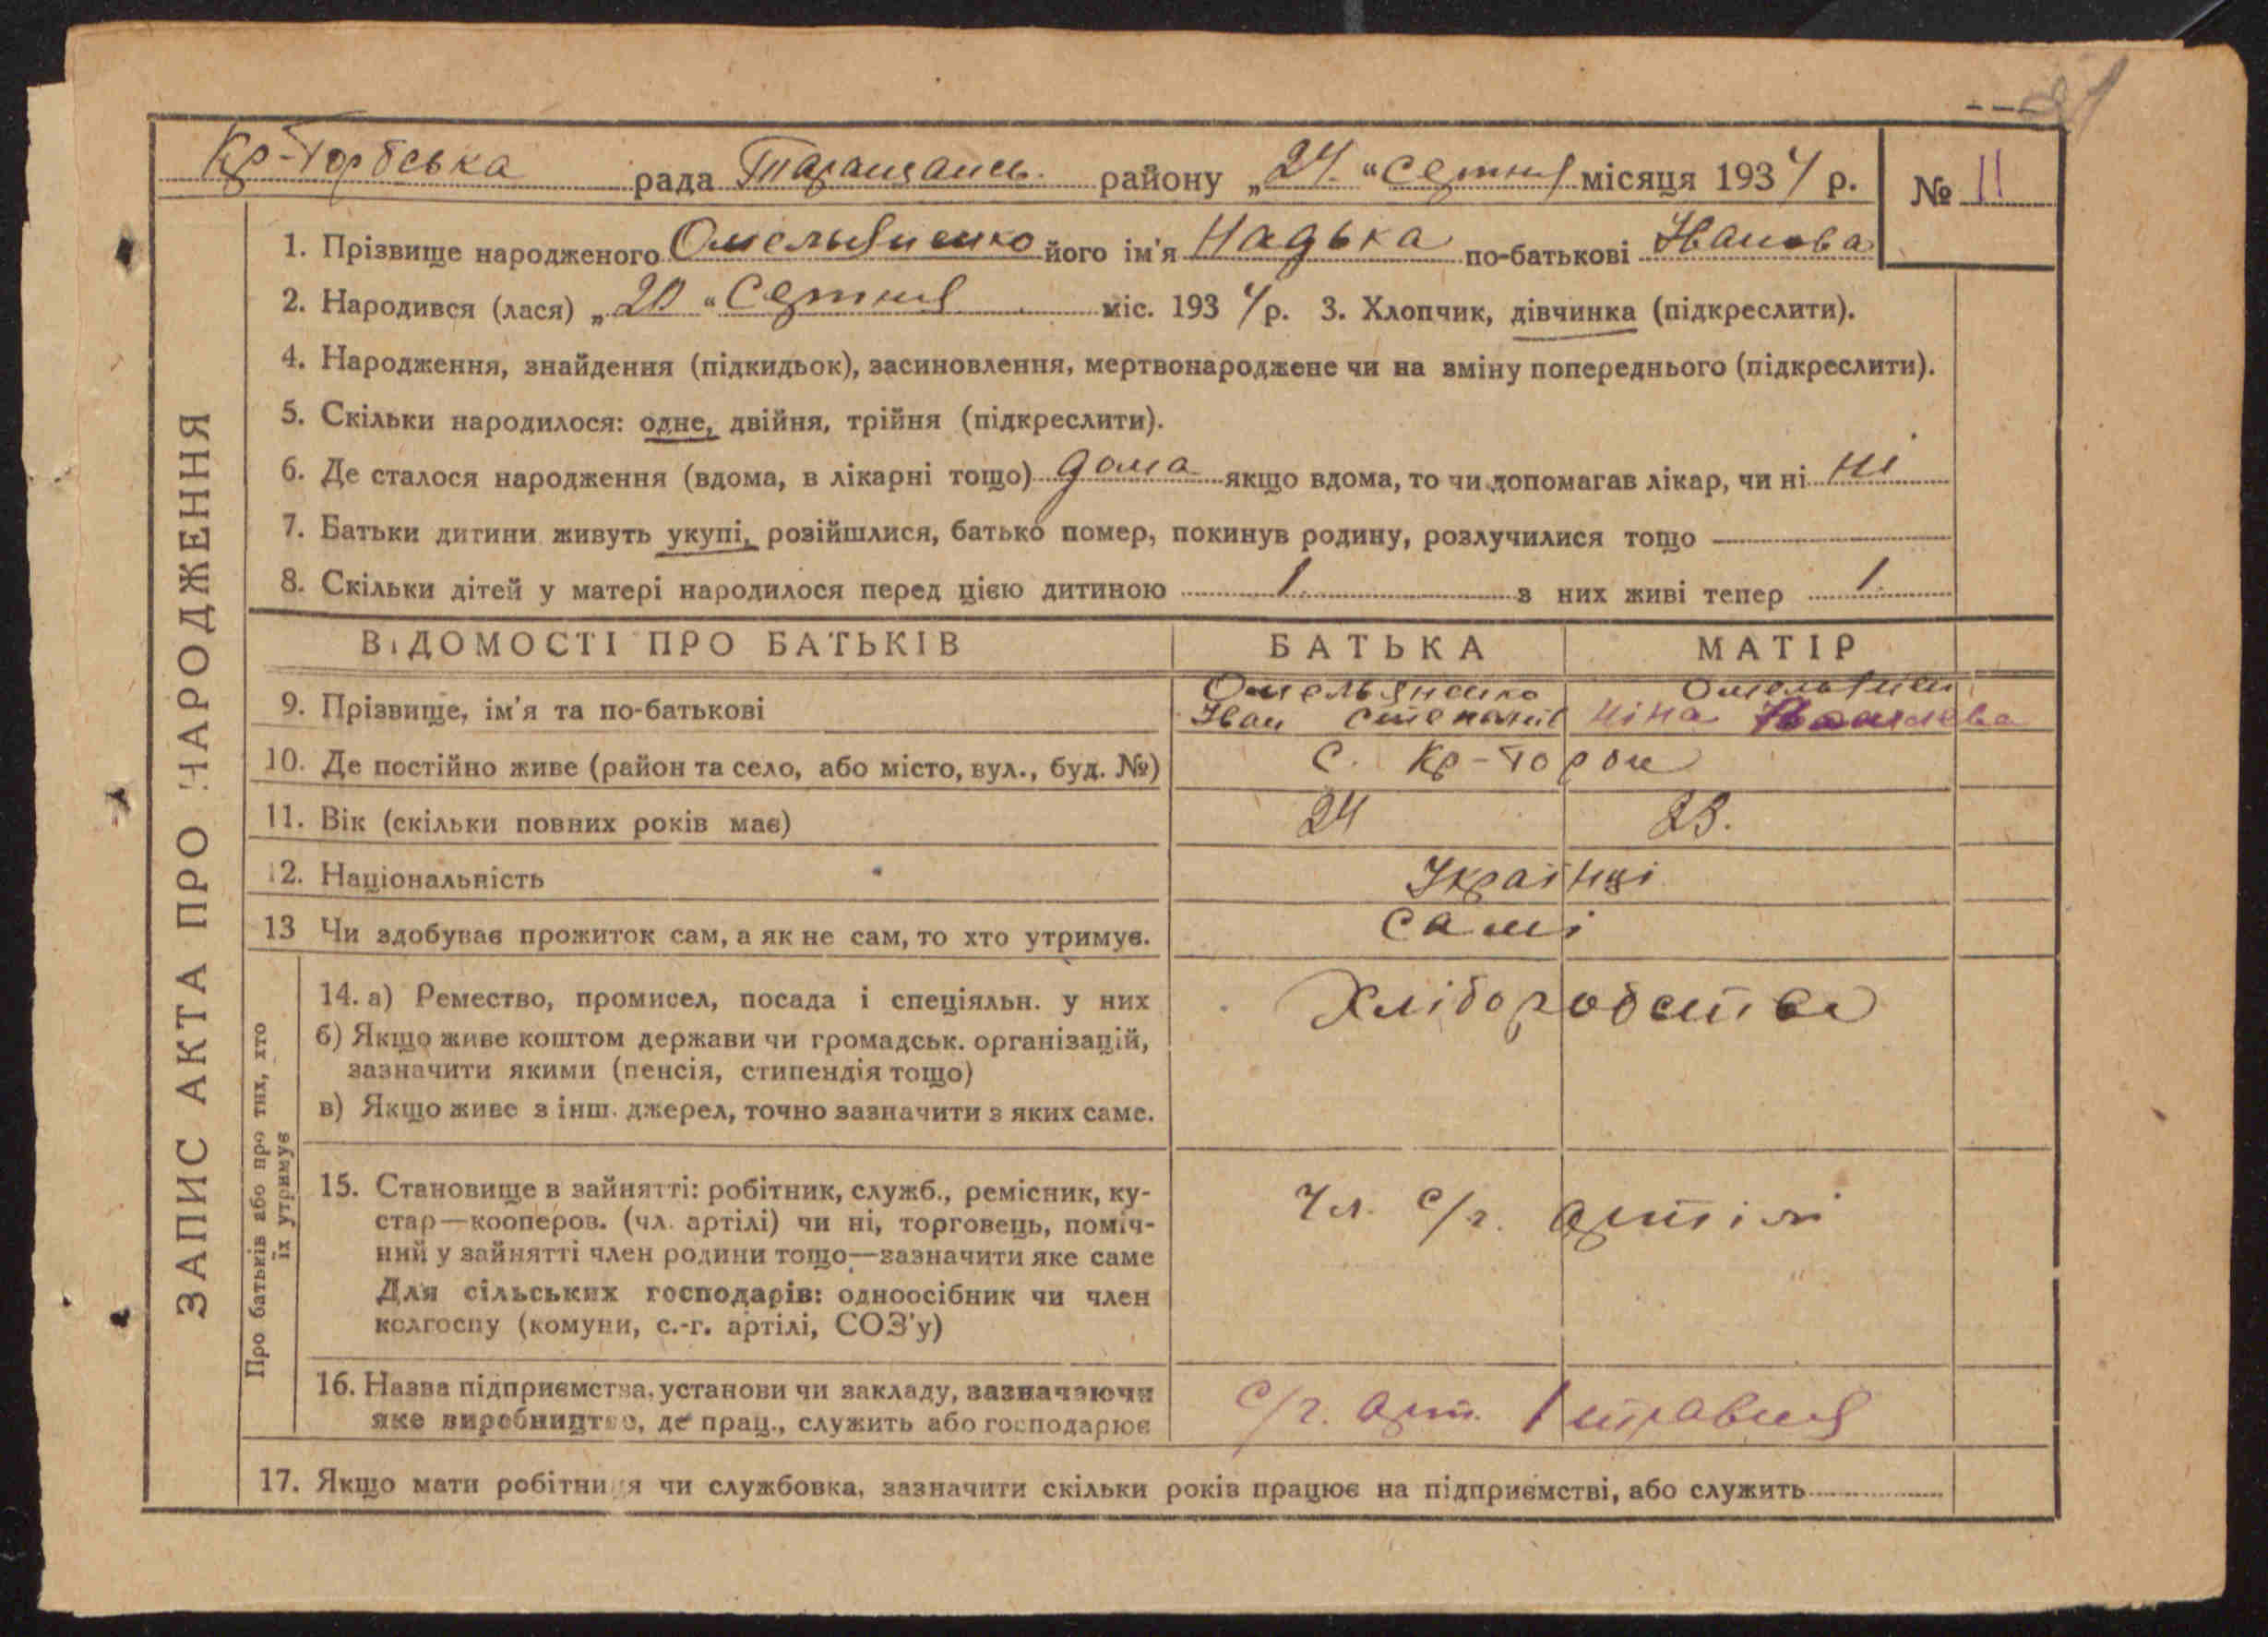 Кр-Горбська рада Таращансь. району „24.“ Сетня місяця 1934 р. № 11
1. Прізвище народженого Омельяненко його ім'я Надька по-батькові Іванова
2. Народився (лася) „20“ Сетня міс. 1934 р. 3. Хлопчик, дівчинка (підкреслити).
4. Народження, знайдення (підкидьок), засиновлення, мертвонароджене чи на зміну попереднього (підкреслити).
5. Скільки народилося: одне, двійня, трійня (підкреслити).
6. Де сталося народження (вдома, в лікарні тощо) дома якщо вдома, то чи допомагав лікар, чи ні ні
7. Батьки дитини живуть укупі, розійшлися, батько помер, покинув родину, розлучилися тощо
8. Скільки дітей у матері народилося перед цією дитиною 1. з них живі тепер 1.
ВІДОМОСТІ ПРО БАТЬКІВ БАТЬКА МАТІР
9. Прізвище, ім'я та по-батькові Омельяненко Іван Степанів Ніна
10. Де постійно живе (район та село, або місто, вул., буд. №) с. Кр-
11. Вік (скільки повних років має) 24 23.
12. Національність Українці
13 Чи здобуває прожиток сам, а як не сам, то хто утримує. Самі
14. а) Ремество, промисел, посада і спеціяльн. у них Хліборобства
б) Якщо живе коштом держави чи громадськ. організацій,
зазначити якими (пенсія, стипендія тощо)
в) Якщо живе з інш. джерел, точно зазначити з яких саме.
15. Становище в зайнятті: робітник, служб., ремісник, ку-
стар—кооперов. (чл. артілі) чи ні, торговець, поміч- Чл. с/г. артілі
ний у зайнятті член родини тощо—зазначити яке саме
Для сільських господарів: одноосібник чи член
колгоспу (комуни, с.-г. артілі, СОЗ'у)
16. Назва підприємства, установи чи закладу, зазначаючи
яке виробництво, де прац., служить або господарює с/г. арт. 1 травня
17. Якщо мати робітниця чи службовка, зазначити скільки років працює на підприємстві, або служить
ЗАПИС АКТА ПРО НАРОДЖЕННЯ
Про батьків або про тих, хто
їх утримує